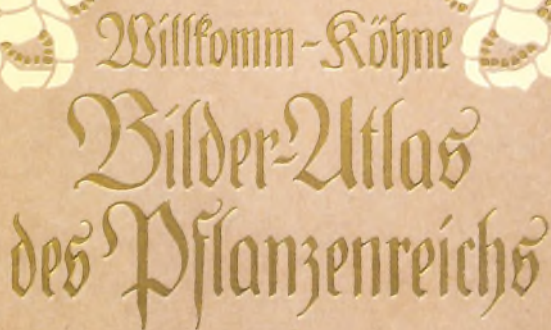 Willkomm-Köhne
Bilder-Atlas
des Pflanzenreichs